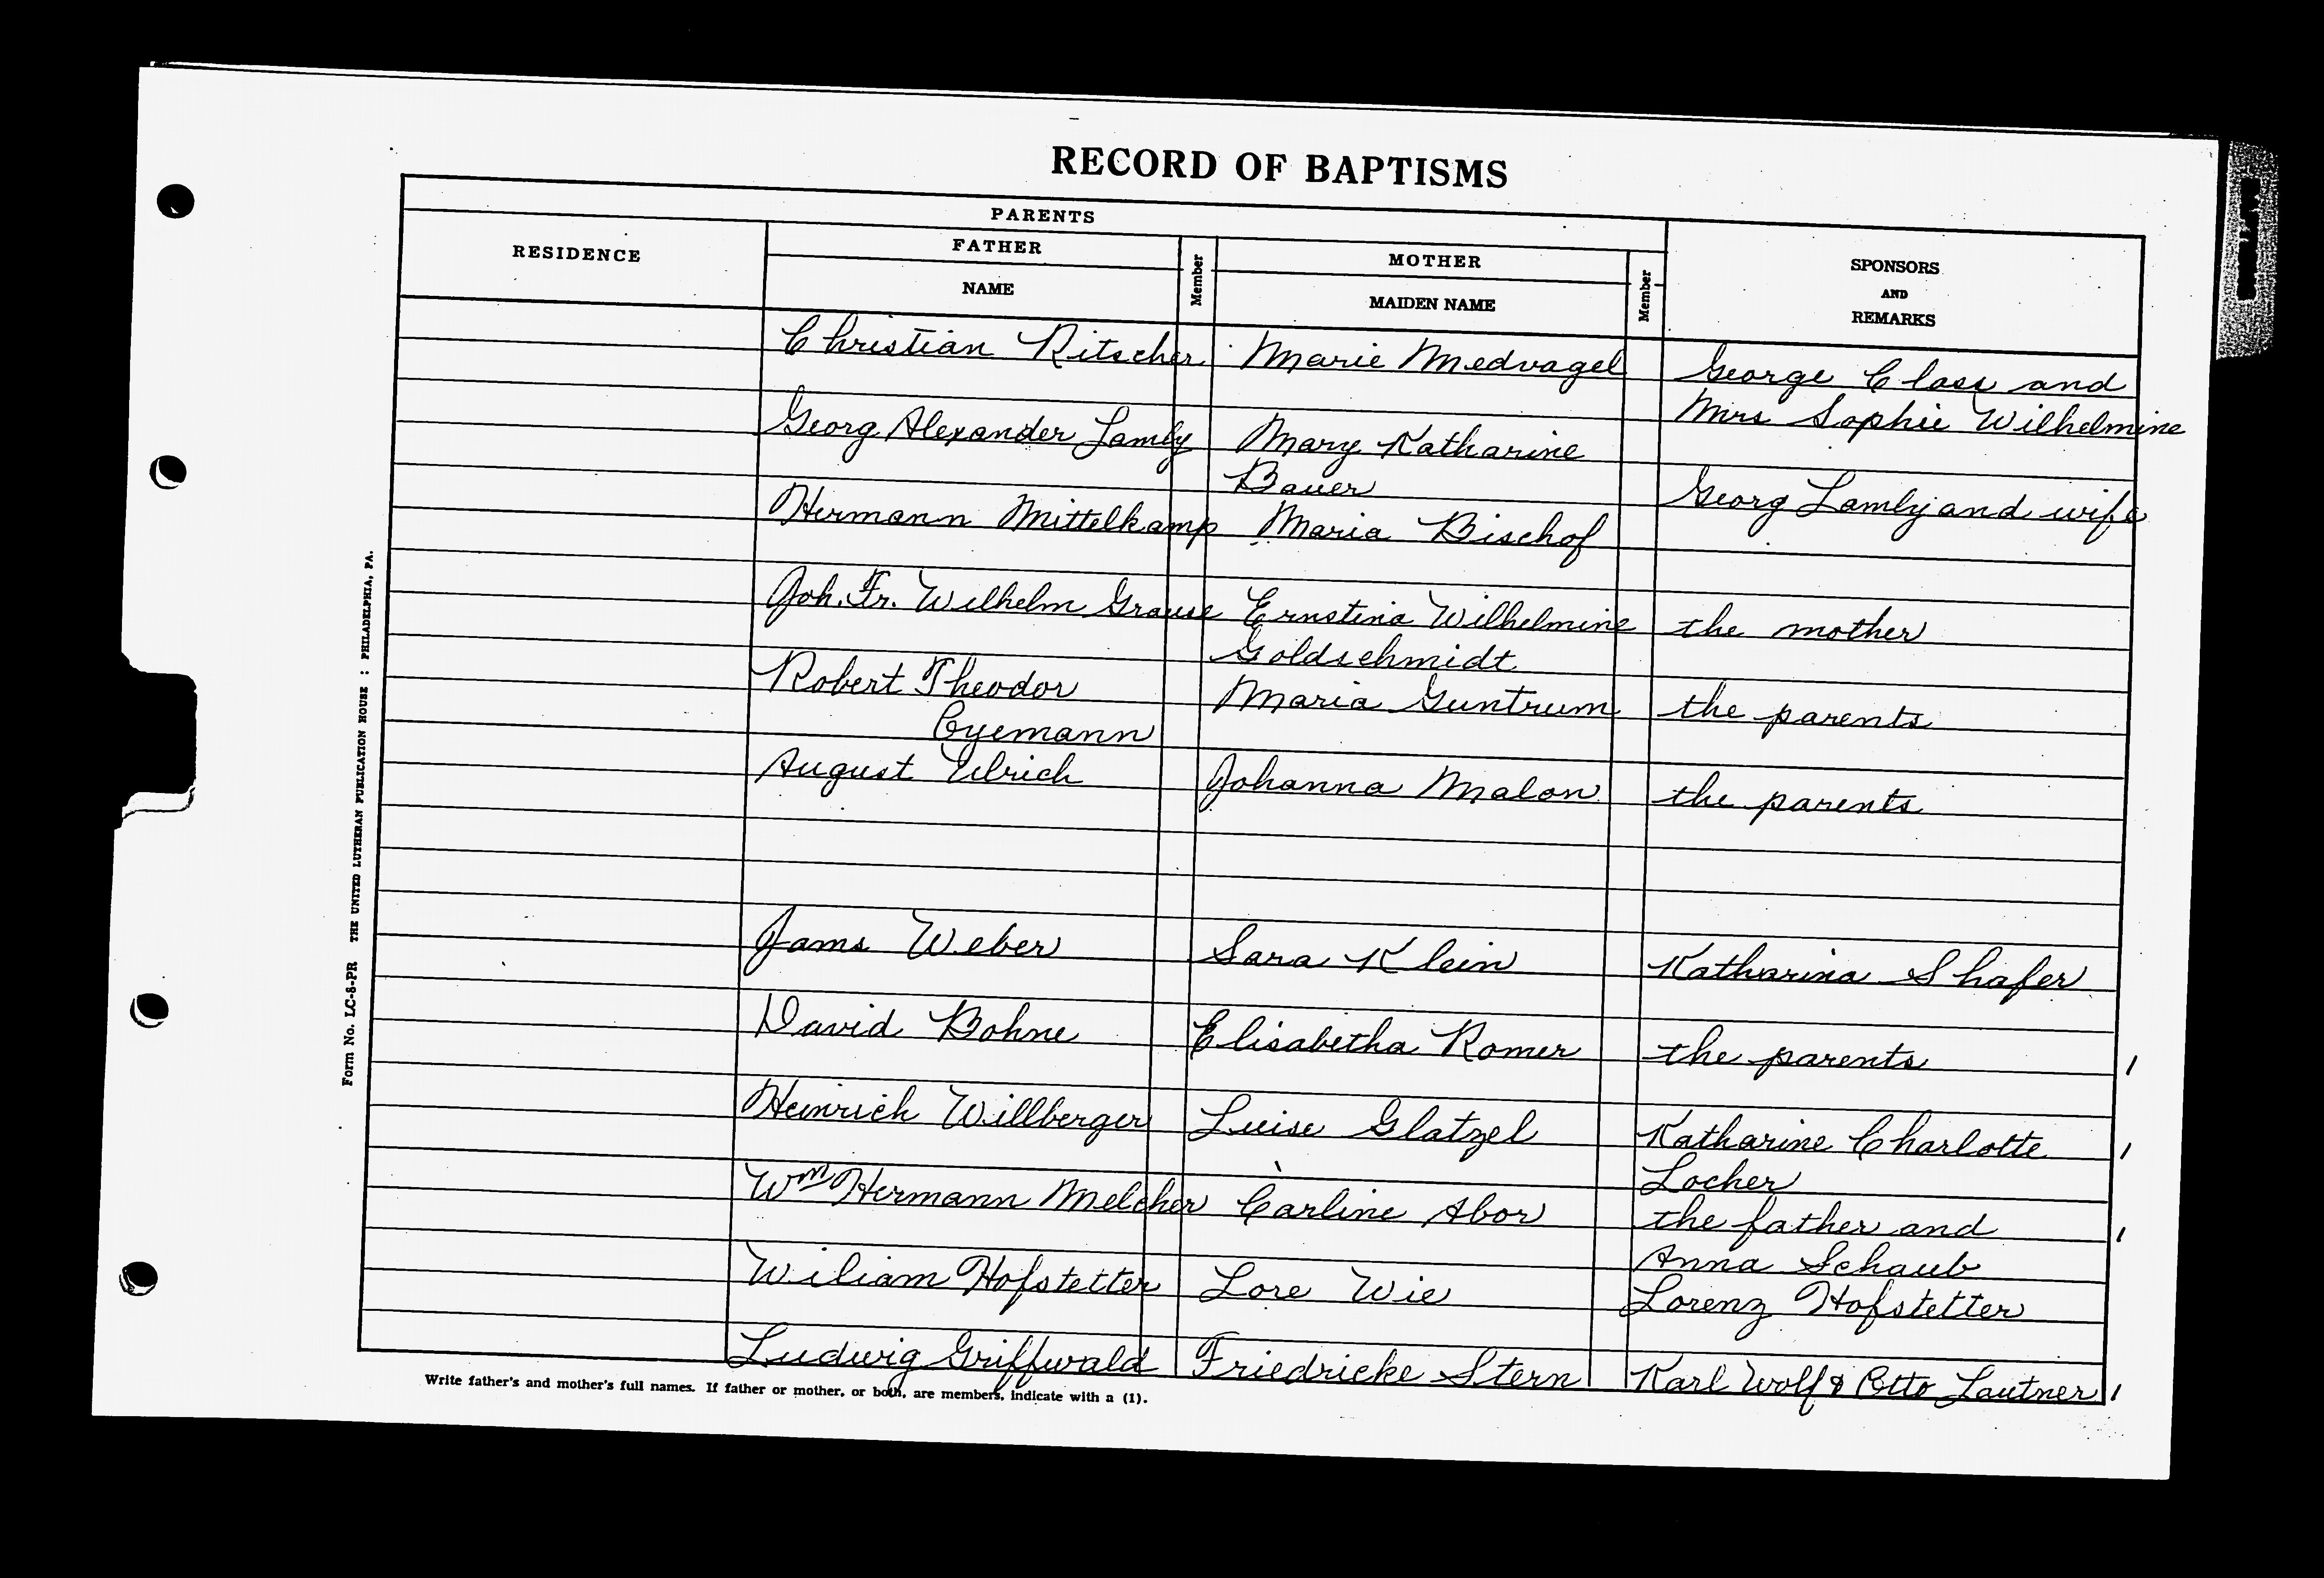 RECORD OF BAPTISMS
PARENTS
RESIDENCE
FATHER
NAME
Member
MOTHER
MAIDEN NAME
Member
SPONSORS
AND
REMARKS
Christian Ritscher Marie Medvagel George Class and
Mrs Sophie Wilhelmine
Georg Alexander Lamly Mary Katharine
Bauer Georg Lamly and wife
Hermann Mittelkamp Maria Bischof
Joh. Fr. Wilhelm Grause Ernstina Wilhelmine the mother
Goldschmidt
Robert Theodor Maria Guntrum the parents
Oyemann
August Ulrich Johanna Malon the parents
Jams Weber Sara Klein Katharina Shafer
David Bohne Elisabetha Romer the parents
Heinrich Willberger Luise Glatzel Katharine Charlotte
Locher
Wm Hermann Melcher Carline Abor the father and
Anna Schaub
Wiliam Hofstetter Lore Wie Lorenz Hofstetter
Ludwig Griffwald Friedricke Stern Karl Wolf & Otto Lautner
Write father's and mother's full names. If father or mother, or both, are members, indicate with a (1).
Form No. LC-8-PR THE UNITED LUTHERAN PUBLICATION HOUSE : PHILADELPHIA, PA.